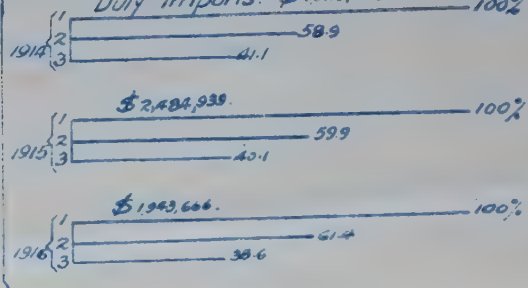 Duty Imports. $
1 100%
1914 2 58.9
3 41.1
$2,484,939.
1 100%
1915 2 59.9
3 40.1
$1,943,666.
1 100%
1916 2 61.4
3 38.6